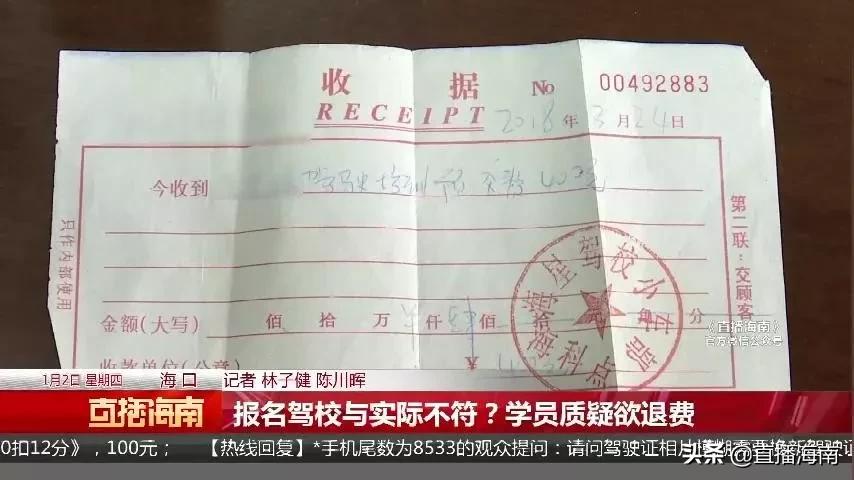 收 据 No 00492883
RECEIPT
2018 年 3 月 24 日
今收到
只作内部使用
第二联：交顾客
金额(大写) 佰 拾 万 仟 佰 拾 元 角 分
收款单位(公章) ¥
《直播海南》
官方微信公众号
1月2日 星期四 海口 记者 林子健 陈川晖
直播海南 报名驾校与实际不符？学员质疑欲退费
0扣12分》，100元； 【热线回复】*手机尾数为8533的观众提问：请问驾驶证相片模糊需要换新驾驶证
头条 @直播海南